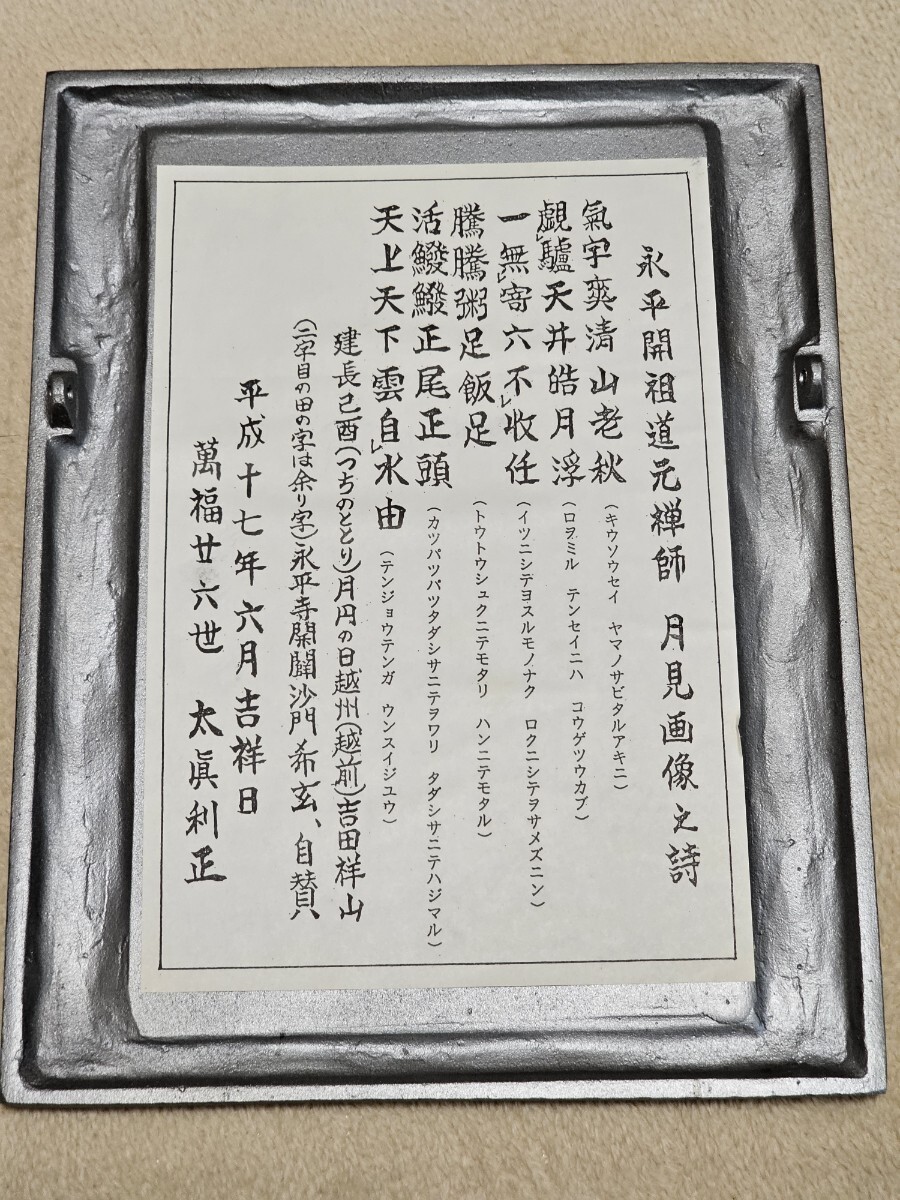 永平開祖道元禅師　月見画像之詩
氣宇爽清山老秋（キウソウセイ　ヤマノサビタルアキニ）
覷レ驢天井皓月浮（ロヲミル　テンセイニハ　コウゲツウカブ）
一無レ寄六不レ收任（イツニシテヨスルモノナク　ロクニシテヲサメズニン）
騰騰粥足飯足（トウトウシュクニテモタリ　ハンニテモタル）
活鱍鱍正尾正頭（カツパツパツタダシサニテヲワリ　タダシサニテハジマル）
天上天下雲自レ水由（テンジョウテンガ　ウンスイジユウ）
建長己酉（つちのととり）月円の日越州（越前）吉田祥山
（二字目の田の字は余り字）永平寺開闢沙門希玄、自賛
平成十七年六月吉祥日
萬福廿六世　太眞利正